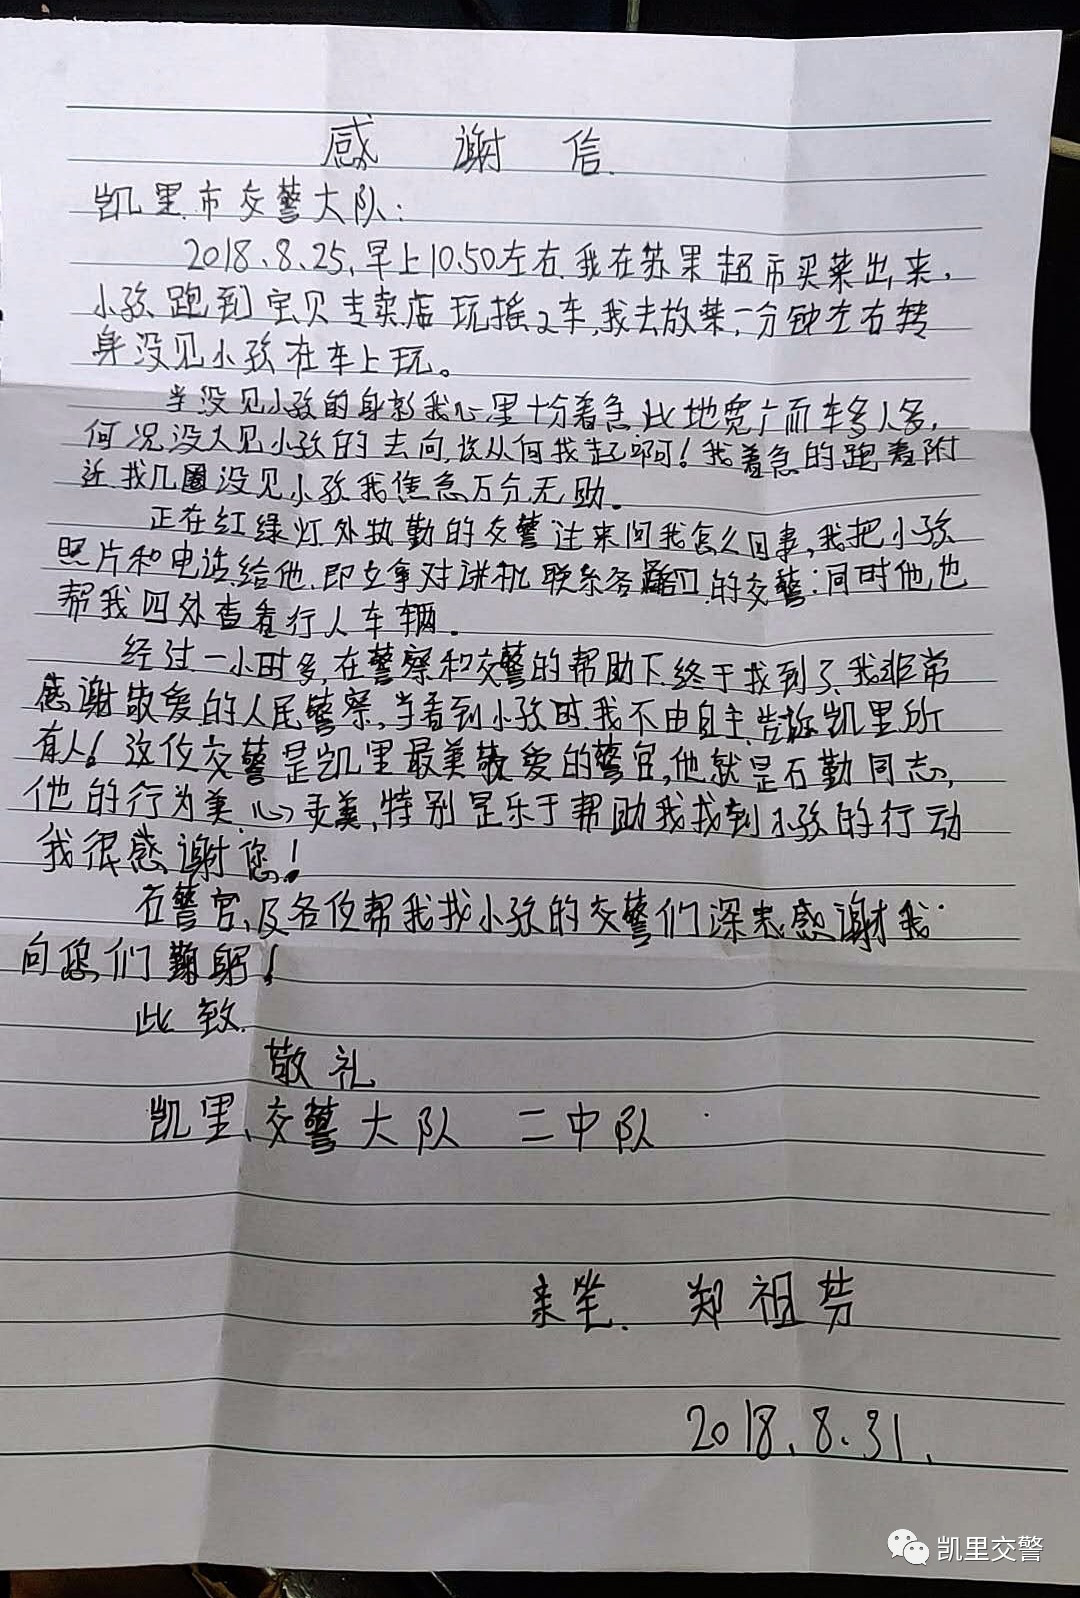 感谢信.
凯里市交警大队:
2018、8、25、早上10.50左右、我在苏果超市买菜出来,
小孩跑到宝贝专卖店玩摇2车,我去放菜,一分钟左右转
身没见小孩在车上玩。
当没见小孩的身影我心里十分着急此地宽广而车多人多,
何况没人见小孩的去向,该从何找起啊!我着急的跑着附
近找几圈没见小孩我焦急万分无助。
正在红绿灯外执勤的交警过来问我怎么回事,我把小孩
照片和电话给他.即立拿对讲机联系各路口.的交警;同时他也
帮我四处查看行人车辆.
经过一小时多,在警察和交警的帮助下.终于找到了.我非常
感谢敬爱的人民警察,当看到小孩时.我不由自主.告诉凯里所
有人!这位交警是凯里最美敬爱的警官,他就是石勤同志,
他的行为美.心灵美,特别是乐于帮助我找到小孩的行动
我很感谢您!
石警官、及各位帮我找小孩的交警们深表感谢我:
向您们鞠躬!
此致.
敬礼
凯里、交警大队 二中队
亲笔. 郑祖芬
2018、8、31、
凯里交警